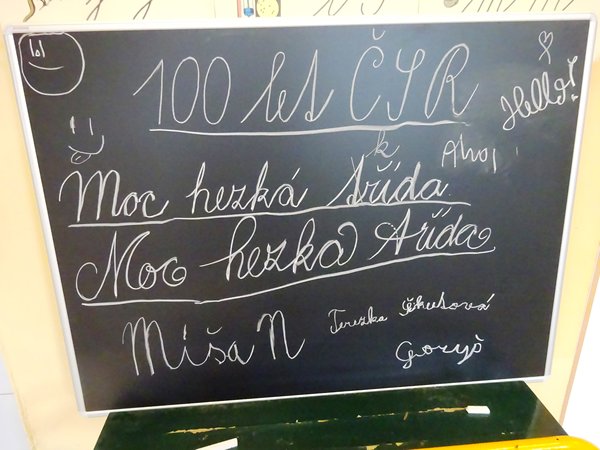 lol
100 let ČSR
Hello!
Ahoj
k
Moc hezká třída
Moc hezka třída
Míša N
Terezka